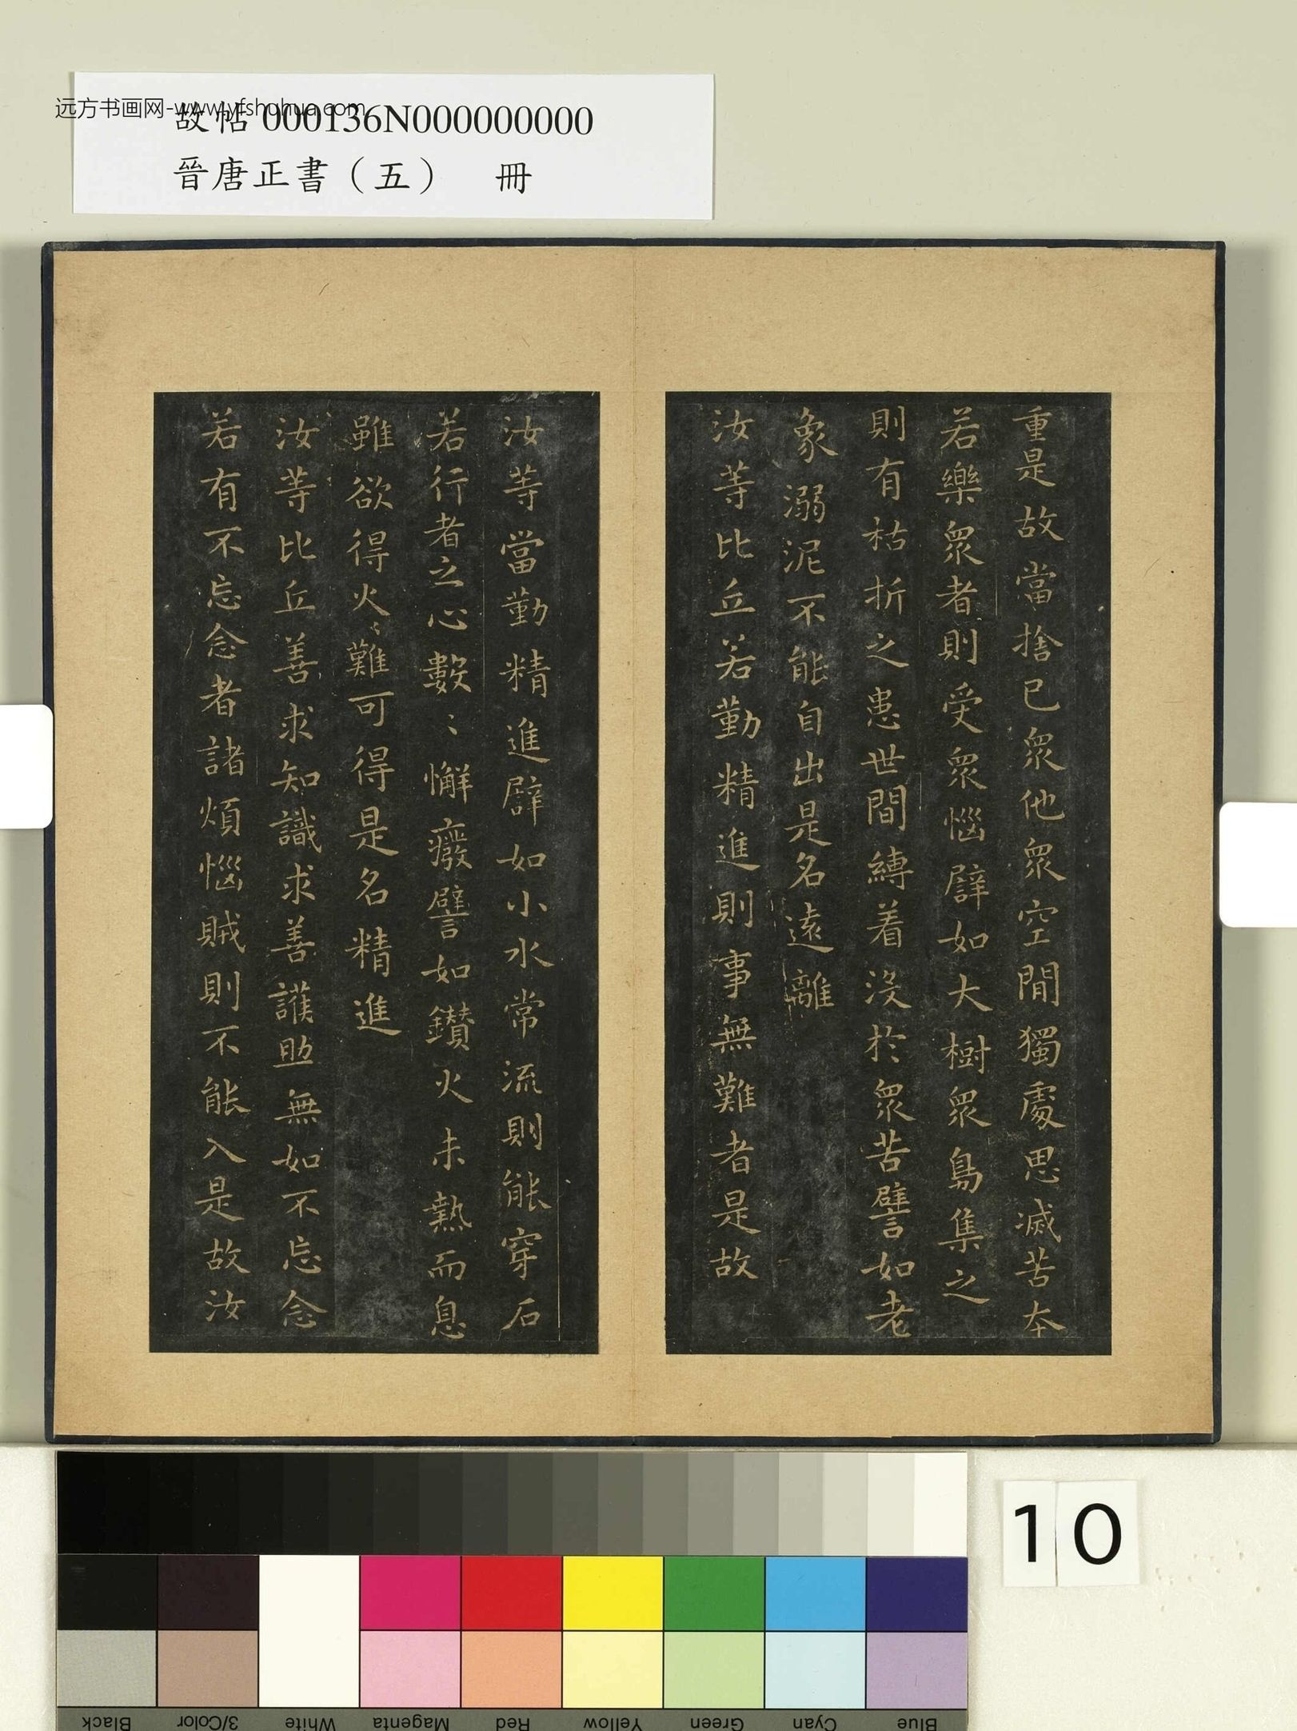 远方书画网-www.yfshuhua.com
故帖 000136N000000000
晉唐正書（五） 冊
重是故當捨已眾他眾空閒獨處思滅苦本
若樂眾者則受眾惱譬如大樹眾鳥集之
則有枯折之患世間縛着沒於眾苦譬如老
象溺泥不能自出是名遠離
汝等比丘若勤精進則事無難者是故
汝等當勤精進譬如小水常流則能穿石
若行者之心數〻懈癈譬如鑚火未熱而息
雖欲得火〻難可得是名精進
汝等比丘善求知識求善護助無如不忘念
若有不忘念者諸煩惱賊則不能入是故汝
10
Black 3/Color White Magenta Red Yellow Green Cyan Blue